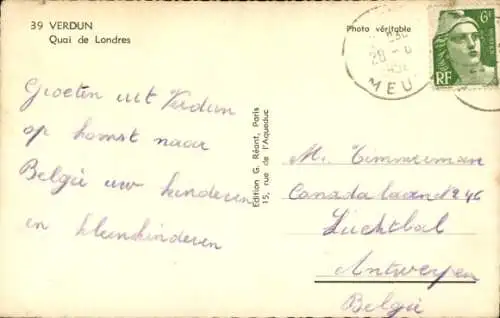 39 VERDUN
Quai de Londres
Photo véritable
6F
RF
28 - 6
MEU
Groeten uit Verdun
op komst naar
België uw kinderen
en kleinkinderen
Edition G. Réant, Paris
15, rue de l'Aqueduc
Mr. Timmerman
Canadalaan 246
Luchtbal
Antwerpen
België